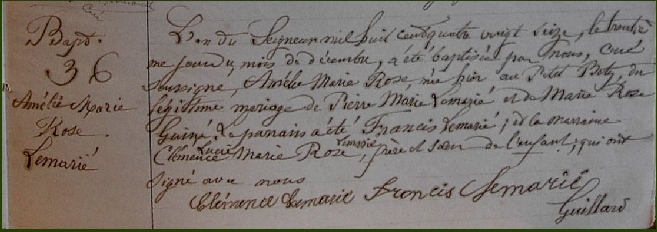 Bapt.
36
Amélie Marie
Rose
Lemarié
L'an du Seigneur mil huit cent quatre vingt seize, le trentiè
me jour du mois de décembre, a été baptisée par nous, curé
soussigné, Amélie Marie Rose née hier au Petit Betz, du
légitime mariage de Pierre Marie Lemarié et de Marie Rose
Guiné, Le parrain a été Francis Lemarié, et la marraine
Clémence Lucie Marie Rose Lemarié, frère et sœur de l'enfant, qui ont
signé avec nous
Clémence Lemarié Francis Lemarié
Guillard